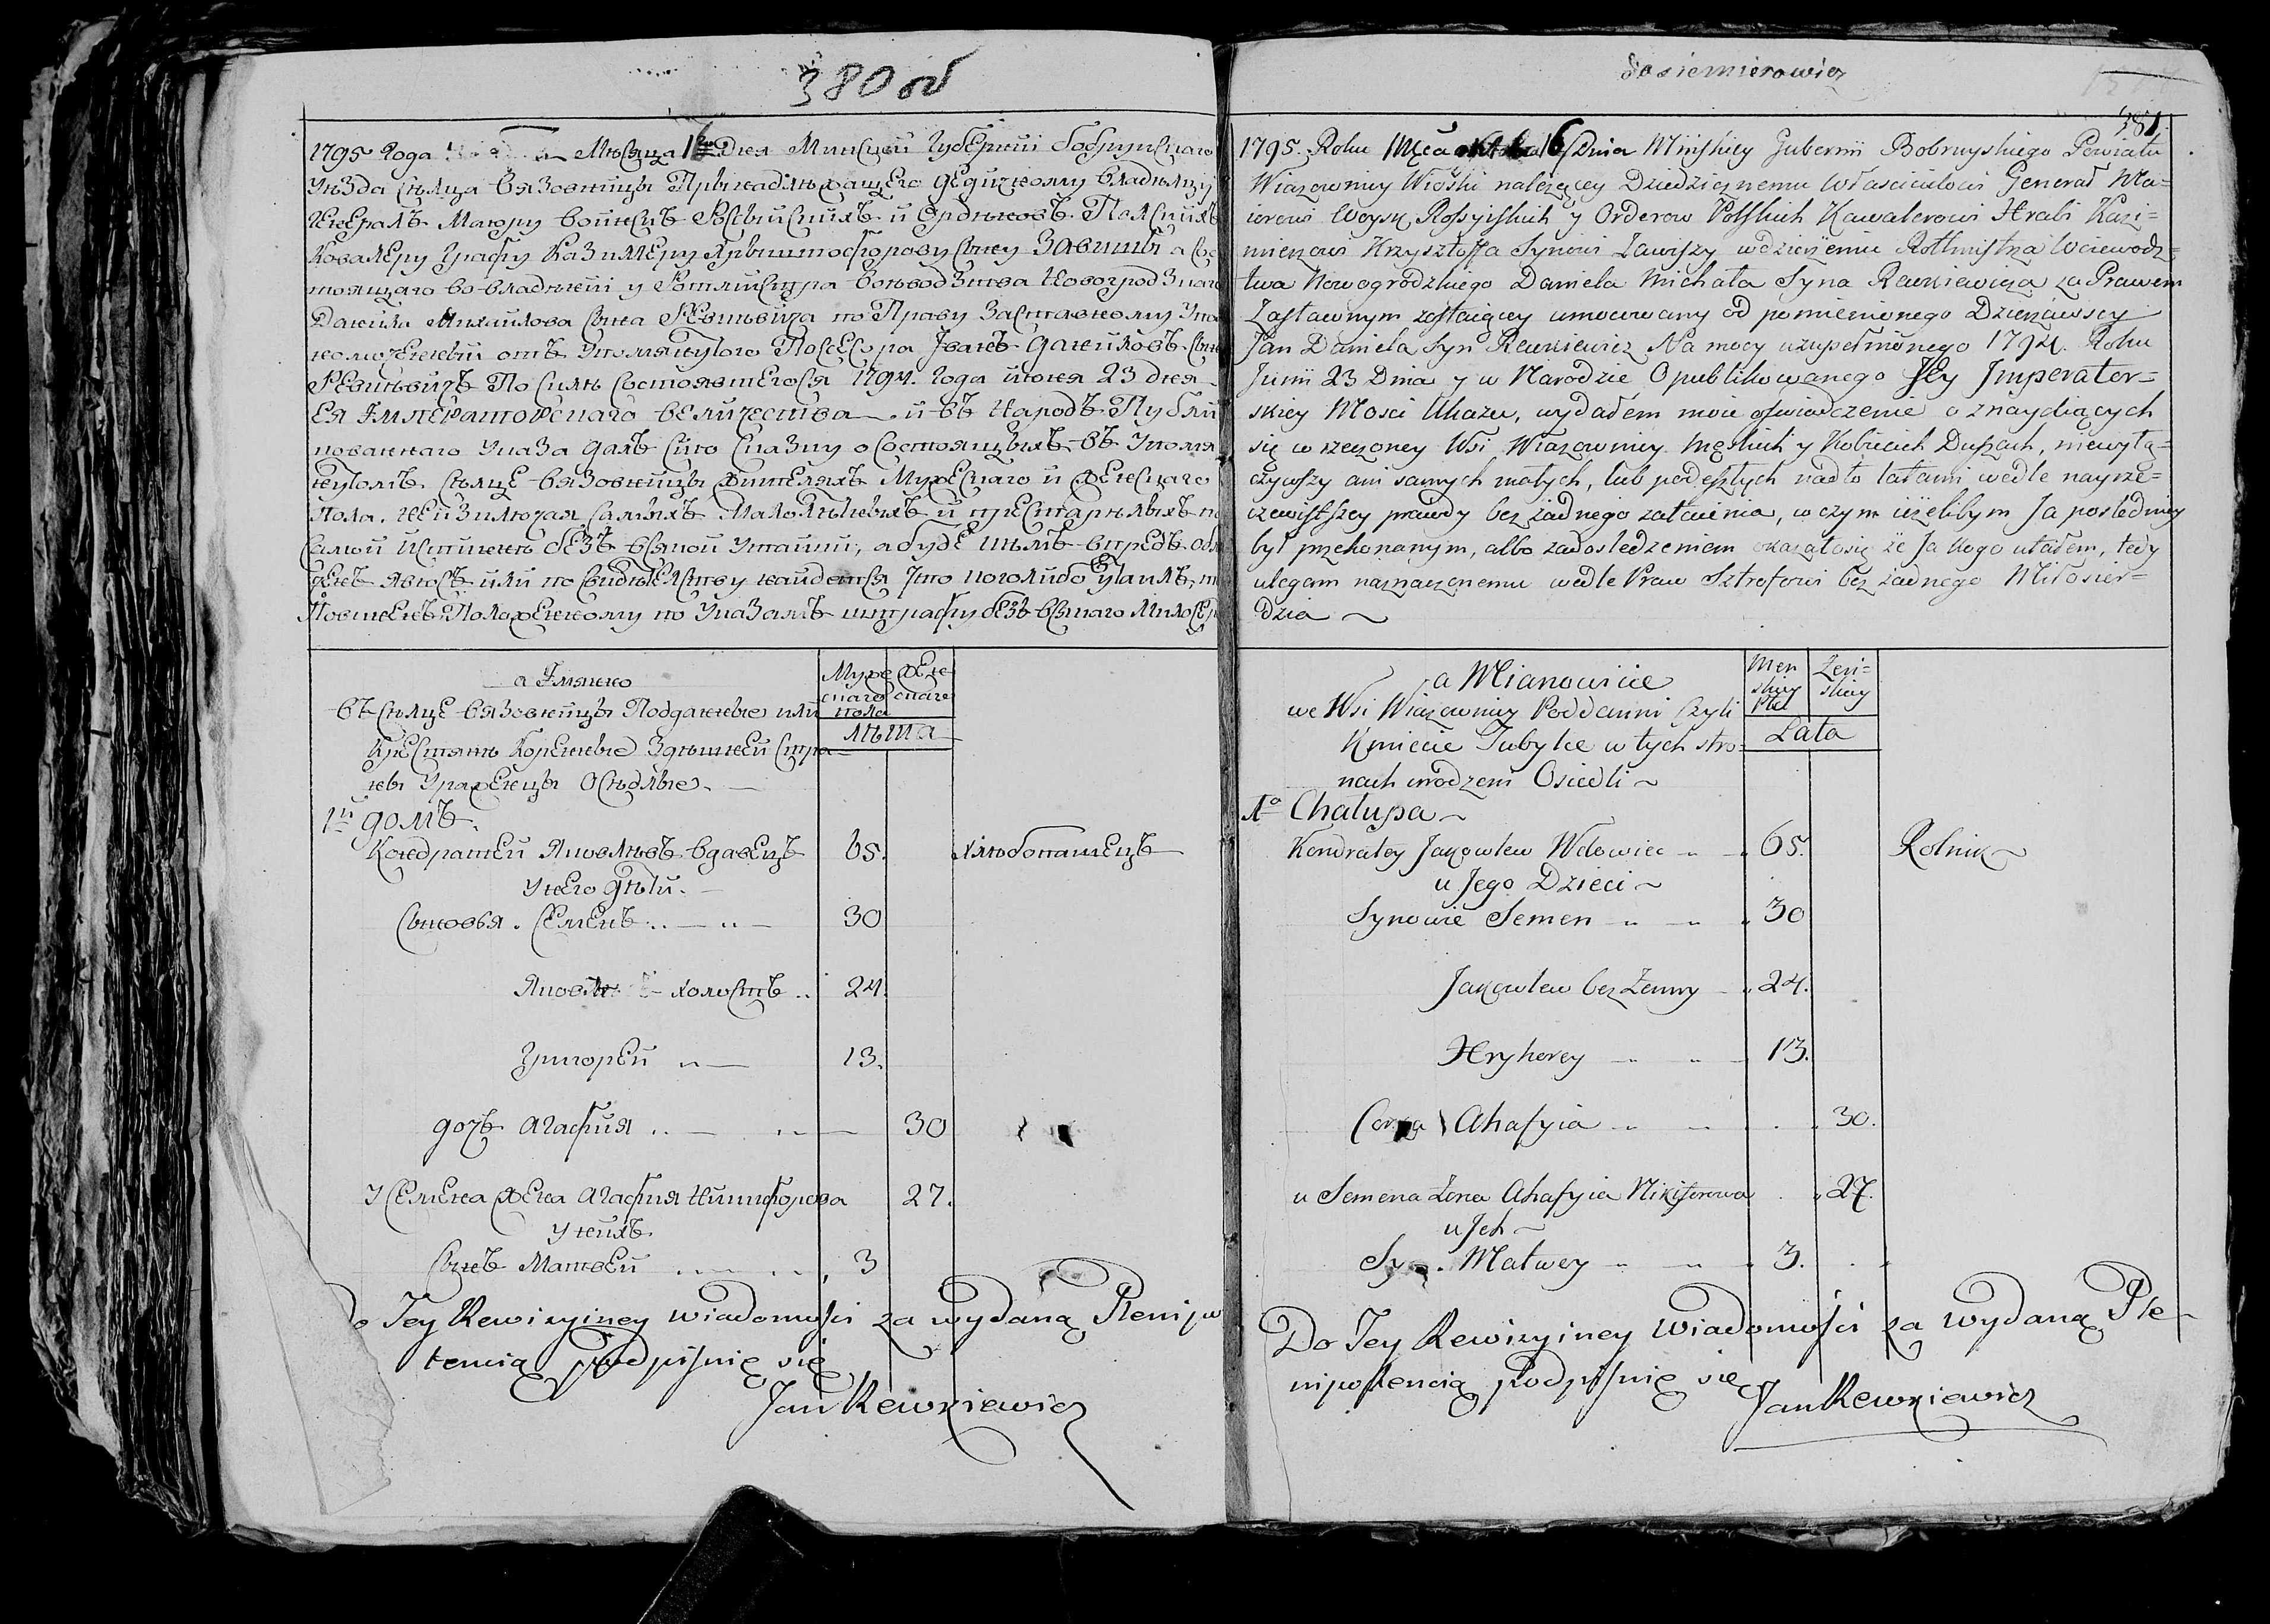 380 об
1795 Года Месяца 16 Дня Минской Губерний Бобруискаго
Уѣзда сѣльца Вязовницы Принадлѣжащего Дедичному владѣльцу
Генералъ Маиору Воискъ Россыискихъ и Ордѣновъ Полскихъ
Ковалеру Графу Казимеру Крыштофорову сыну Завишы а Сос
тоящаго во владѣнии у Ротмистра Воеводзтва Новогродзкаго
Данила Михайлова сына Ревкевича по Праву Заставному Упо
номоченный отъ Упомянутого Посесора Іванъ Данииловъ сынъ
Ревкевичъ По силѣ Состоявшегося 1794. Года июня 23 дня
Ея Імператорскаго величества и въ Народъ Публи
кованнаго Указа далъ сию сказку о Состоящыхъ въ Упомя
нутомъ сѣльце Вязовницы жителяхъ Мужескаго и женскаго
Пола. не изключая самыхъ Малолѣтныхъ и престарѣлыхъ по
самой истиннѣ безъ всякой Утайки, а буде въ чѣмъ впредъ обли
ченъ явюсь или по свидѣтелству найдется что кого либо Утаилъ, то
Повиненъ Положенному по Указамъ штрафу безъ всякаго Милосер
а Імянно
въ сѣльце Вязовницы Подданные или
Крестянѣ Коренные Здѣшней Стра
ны Уроженцы Осѣдлые.
Муже
скаго
пола
Жен
скаго
лѣта
1й домъ.
Кондратей Яковлѣвъ вдавецъ 65. хлѣбопашецъ
У него дѣти.
Сыновья. Семенъ 30
холостъ 24.
Григорей 13.
дочь Агафия 30
У Семена жена Агафия Никифорова 27.
У нихъ
Сынъ Матвей 3
do Tey Rewizyiney wiadomości za wydaną Plenipo
tencią podpisuię się
Jan Rewkiewicz
381.
1795. Roku Mca 16 Dnia Minskiey Gubernii Bobruyskiego Powiatu
Wiazownicy Wioski należącey Dziedzicznemu Włascicielowi Generał Ma=
iorowi Woysk Rossyiskich y Orderow Polskich Kawalerowi Hrabi Kazi=
mierzowi Krysztoffa Synowi Zawiszy w dzierżeniu Rotmistrza Woiewodz=
twa Nowogrodzkiego Daniela Michała Syna Rewkiewicza za Prawem
Zastawnym zostaiącey umocowany od pomienionego Dzierżawcy
Jan Daniela Syn Rewkiewicz Na mocy uzupełnionego 1794. Roku
Junii 23 Dnia y w Narodzie Opublikowanego Jey Imperator=
skiey Mosci Ukazu, wydałem moie oswiadczenie o znayduiących
się w rzeczoney Wsi Wiazownicy męskich y Kobiecich Duszach, niewyłą=
czywszy ani samych małych, lub podeszłych nadto latami wedle nayrze=
czewistszey prawdy bez żadnego zataienia, w czym iżelibym Ja posledniey
był przekonanym, albo zadosledzeniem okazałosię że Ja kogo utaiłem, tedy
ulegam naznaczonemu wedle Praw Sztrofowi bez żadnego Miłosier=
dzia
a Mianowicie
we Wsi Wiazownicy Poddanni Czyli
Kmiecie Tubylce w tych stro=
nach urodzeni Osiedli
Męn
skiey
Płci
Żeń=
skiey
Lata
1o Chałupa
Kondratey Jakowlew Wdowiec 65. Rolnik
u Jego Dzieci
Synowie Semen 30
Jakowlew bez Żenny 24.
Hryhorey 13.
Ahafyia 30.
u Semena Żona Ahafyia Nikiferowa 27.
u Jch
Matwey 3.
Do Tey Rewizyiney Wiadomości za wydaną Ple-
nipotencią podpisuię się
Jan Rewkiewicz